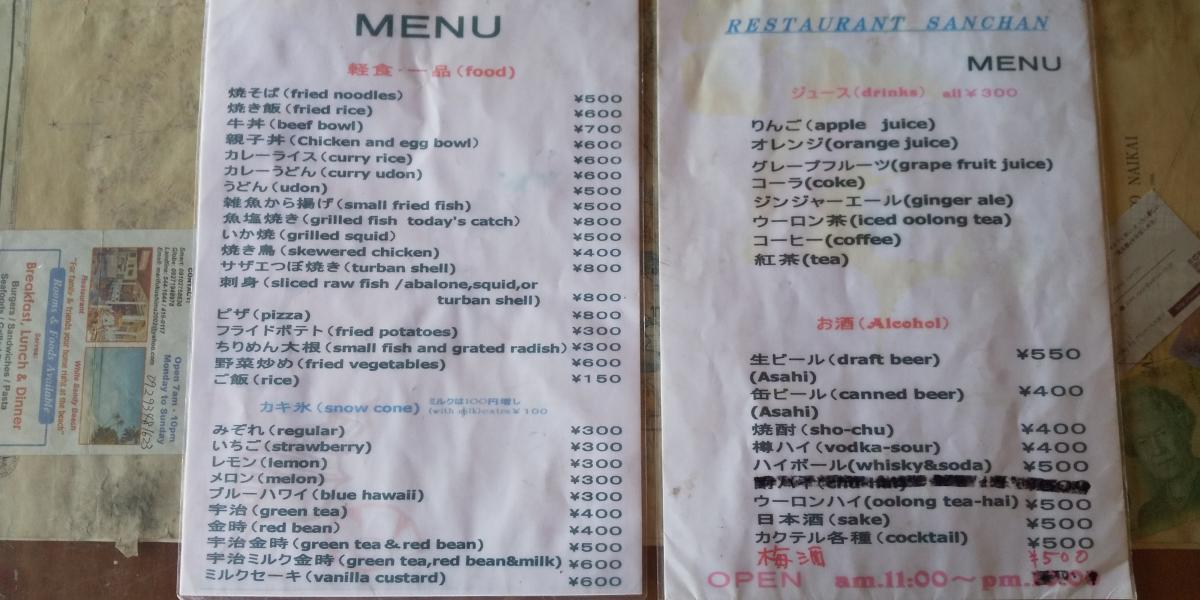 MENU
軽食・一品(food)
焼そば(fried noodles) ¥500
焼き飯(fried rice) ¥600
牛丼(beef bowl) ¥700
親子丼(Chicken and egg bowl) ¥600
カレーライス(curry rice) ¥600
カレーうどん(curry udon) ¥600
うどん(udon) ¥500
雑魚から揚げ(small fried fish) ¥500
魚塩焼き(grilled fish today's catch) ¥800
いか焼(grilled squid) ¥500
焼き鳥(skewered chicken) ¥400
サザエつぼ焼き(turban shell) ¥800
刺身(sliced raw fish /abalone,squid,or
turban shell) ¥800
ピザ(pizza) ¥800
フライドポテト(fried potatoes) ¥300
ちりめん大根(small fish and grated radish) ¥300
野菜炒め(fried vegetables) ¥600
ご飯(rice) ¥150
カキ氷(snow cone) ミルクは100円増し
(with milk:extra¥100
みぞれ(regular) ¥300
いちご(strawberry) ¥300
レモン(lemon) ¥300
メロン(melon) ¥300
ブルーハワイ(blue hawaii) ¥300
宇治(green tea) ¥400
金時(red bean) ¥400
宇治金時(green tea&red bean) ¥500
宇治ミルク金時(green tea,red bean&milk) ¥600
ミルクセーキ(vanilla custard) ¥600
RESTAURANT SANCHAN
MENU
ジュース(drinks) all¥300
りんご(apple juice)
オレンジ(orange juice)
グレープフルーツ(grape fruit juice)
コーラ(coke)
ジンジャーエール(ginger ale)
ウーロン茶(iced oolong tea)
コーヒー(coffee)
紅茶(tea)
お酒(Alcohol)
生ビール(draft beer) ¥550
(Asahi)
缶ビール(canned beer) ¥400
(Asahi)
焼酎(sho-chu) ¥400
樽ハイ(vodka-sour) ¥400
ハイボール(whisky&soda) ¥500
ウーロンハイ(oolong tea-hai) ¥500
日本酒(sake) ¥500
カクテル各種(cocktail) ¥500
梅酒 ¥500
OPEN am.11:00～pm.
Open 7am - 10pm
Monday to Sunday
09293481623
White Sandy Beach
Restaurant
"For family & friends your home right at the beach"
Rooms & Foods Available
Serves:
Breakfast, Lunch & Dinner
Burgers / Sandwiches / Pasta
NAIKAI